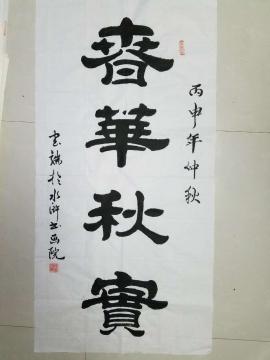 丙申年仲秋
春華秋實
於水滸書画院